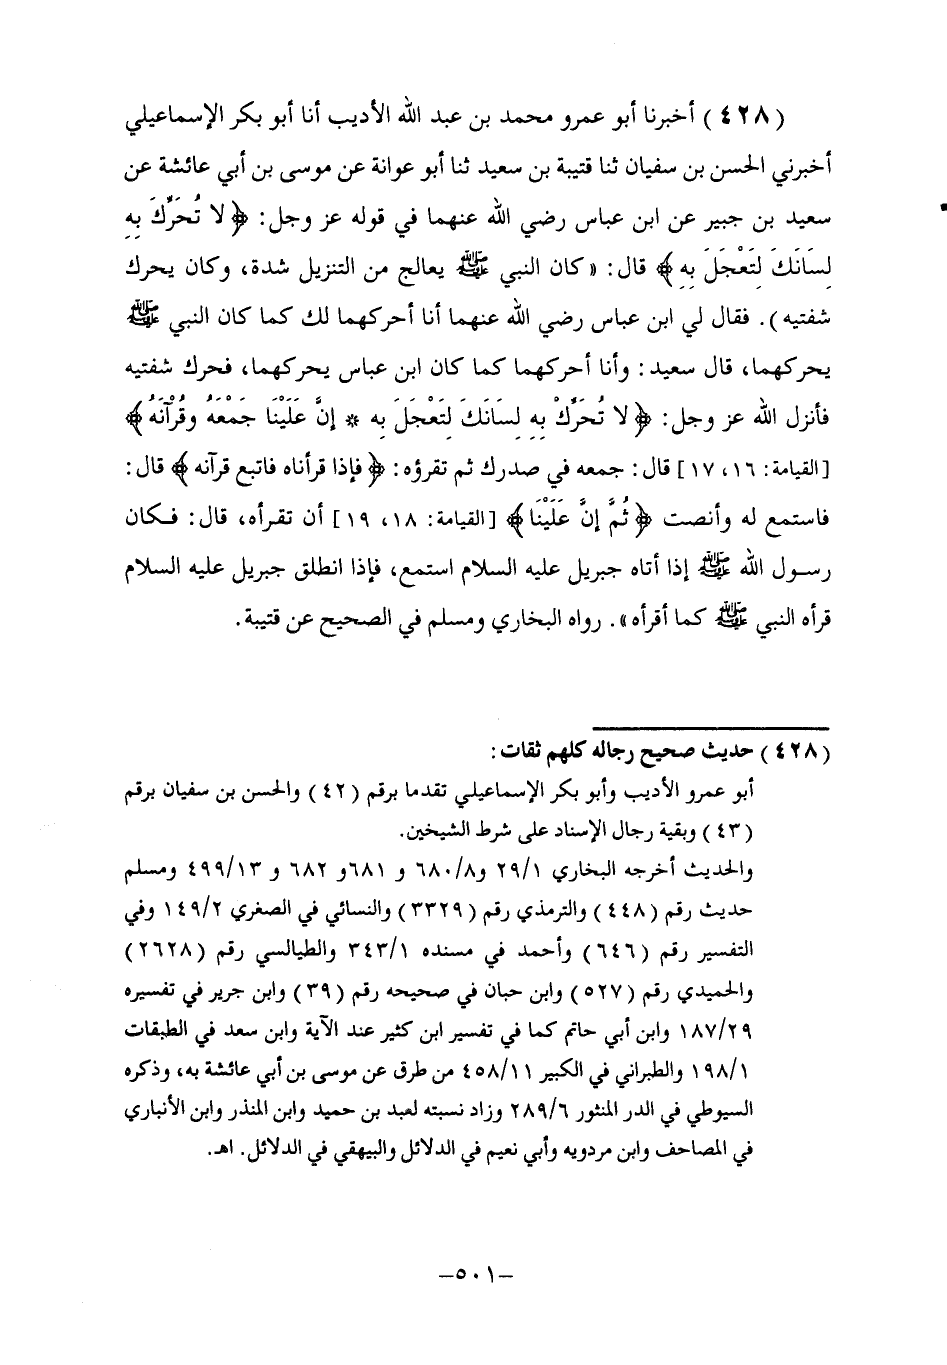 (٤٢٨) أخبرنا أبو عمرو محمد بن عبد الله الأديب أنا أبو بكر الإسماعيلي
أخبرني الحسن بن سفيان ثنا قتيبة بن سعيد ثنا أبو عوانة عن موسى بن أبي عائشة عن
سعيد بن جبير عن ابن عباس رضي الله عنهما في قوله عز وجل: ﴿لا تُحَرِّكَ بِهِ
لِسَانَكَ لِتَعْجَلَ بِهِ﴾ قال: «كان النبي ﷺ يعالج من التنزيل شدة، وكان يحرك
شفتيه). فقال لي ابن عباس رضي الله عنهما أنا أحركهما لك كما كان النبي ﷺ
يحركهما، قال سعيد: وأنا أحركهما كما كان ابن عباس يحركهما، فحرك شفتيه
فأنزل الله عز وجل: ﴿لا تُحَرِّكْ بِهِ لِسَانَكَ لِتَعْجَلَ بِهِ * إِنَّ عَلَيْنَا جَمْعَهُ وقُرْآنَهُ﴾
[القيامة: ١٦، ١٧] قال: جمعه في صدرك ثم تقرؤه: ﴿فإذا قرأناه فاتبع قرآنه﴾ قال:
فاستمع له وأنصت ﴿ثُمَّ إِنَّ عَلَيْنَا﴾ [القيامة: ١٨، ١٩] أن تقرأه، قال: فكان
رسول الله ﷺ إذا أتاه جبريل عليه السلام استمع، فإذا انطلق جبريل عليه السلام
قرأه النبي ﷺ كما أقرأه». رواه البخاري ومسلم في الصحيح عن قتيبة.
(٤٢٨) حديث صحيح رجاله كلهم ثقات:
أبو عمرو الأديب وأبو بكر الإسماعيلي تقدما برقم (٤٢) والحسن بن سفيان برقم
(٤٣) وبقية رجال الإسناد على شرط الشيخين.
والحديث أخرجه البخاري ٢٩/١ و٦٨٠/٨ و ٦٨١و ٦٨٢ و ٤٩٩/١٣ ومسلم
حديث رقم (٤٤٨) والترمذي رقم (٣٣٢٩) والنسائي في الصغري ١٤٩/٢ وفي
التفسير رقم (٦٤٦) وأحمد في مسنده ٣٤٣/١ والطيالسي رقم (٢٦٢٨)
والحميدي رقم (٥٢٧) وابن حبان في صحيحه رقم (٣٩) وابن جرير في تفسيره
١٨٧/٢٩ وابن أبي حاتم كما في تفسير ابن كثير عند الآية وابن سعد في الطبقات
١٩٨/١ والطبراني في الكبير ٤٥٨/١١ من طرق عن موسى بن أبي عائشة به، وذكره
السيوطي في الدر المنثور ٢٨٩/٦ وزاد نسبته لعبد بن حميد وابن المنذر وابن الأنباري
في المصاحف وابن مردويه وأبي نعيم في الدلائل والبيهقي في الدلائل. اهـ.
–٥٠١–